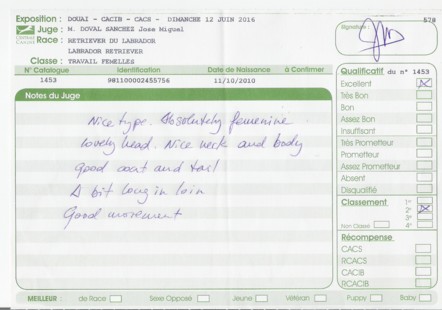 Exposition : DOUAI - CACIB - CACS - DIMANCHE 12 JUIN 2016
Juge : M. DOVAL SANCHEZ Jose Miguel
Race : RETRIEVER DU LABRADOR
LABRADOR RETRIEVER
Classe : TRAVAIL FEMELLES
N° Catalogue Identification Date de Naissance à Confirmer
1453 981100002455756 11/10/2010
Notes du Juge
Nice type. Absolutely femenine
lovely head. Nice neck and body
good coat and tail
A bit long in loin
Good movement
Signature :
578
Qualificatif du n° 1453
Excellent
Très Bon
Bon
Assez Bon
Insuffisant
Très Prometteur
Prometteur
Assez Prometteur
Absent
Disqualifié
Classement
1°
2°
3°
Non Classé 4°
Récompense
CACS
RCACS
CACIB
RCACIB
MEILLEUR : de Race Sexe Opposé Jeune Vétéran Puppy Baby